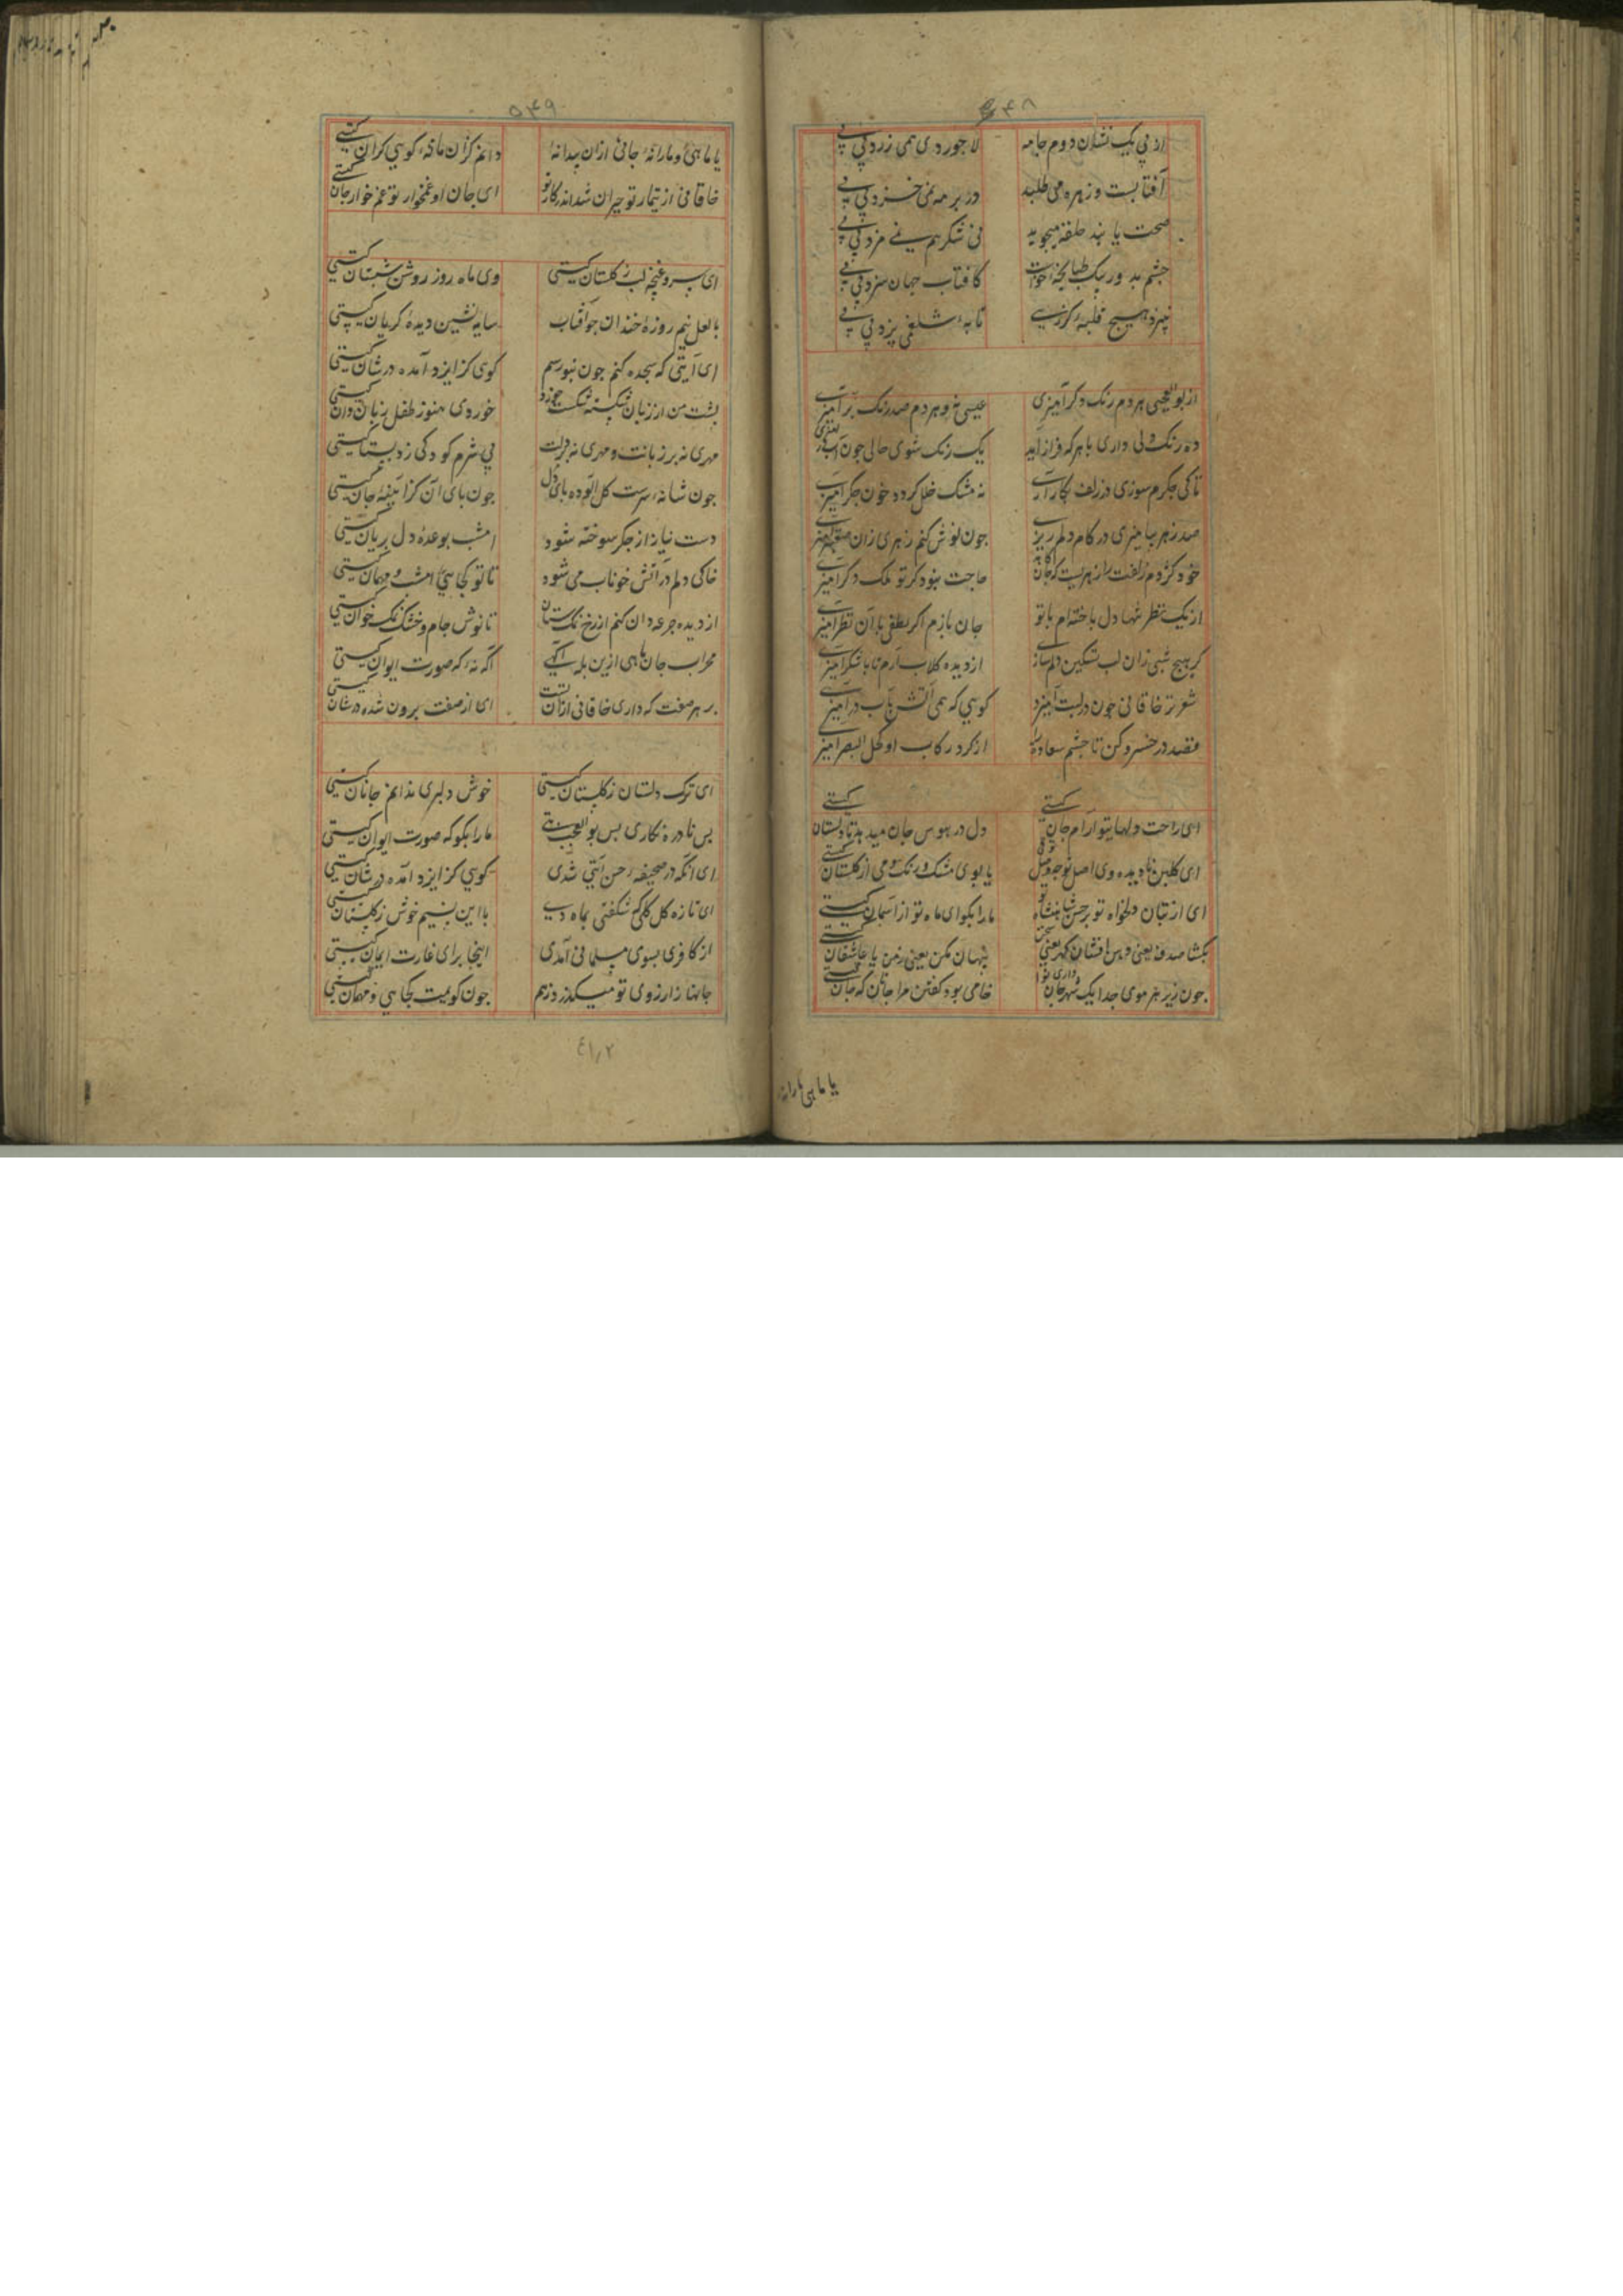 ۵۴۸
از پی یک نشان دوم جامه لاجوردی همی زرد پی پی
آفتابست و زهره می طلبد در بر مه نمی خزد پی پی
صحت یابند حلقه میجوید نی شکر هم نمی مزد پی پی
چشم بد ور یک خواست کافتاب جهان سزد پی پی
نپزد هیچ قلیه تا به شلغمی پزد پی پی
از بوالعجبی هر دم رنک دکر آمیزی عیسی نه و هر دم صد رنک بر آمیزی
ده رنک دلی داری با هر که فراز آید یک رنک شوی حالی چون آب
تا کی جکرم سوزی در زلف بکار آری نه مشک خلل کردد خون جکر آمیزی
صد زهر بیامیزی در کام دلم ریزی چون نوش کنم زهری زان
خود کژدم زلفت را زهریست که جان کاهد حاجت نبود کر تو دکر آمیزی
از یک نظر شها دل باخته ام با تو جان بازم اکر لطفی با آن نظر آمیزی
کر هیچ شبی زان لب تسکین دلم سازی از دیده کلاب آرم تا با شکر آمیزی
شعر تر خاقانی چون در لبت آمیزد کویی که همی آتش با آب در آمیزی
قصد در خسرو کن تا چشم سعادت را از کرد رکاب او کحل البصر آمیزی
ای راحت دلها بتو آرام جان کیستی دل در هوس جان میدهد تا دلستان کیستی
ای کلبن نادیده دی اصل تو چه وصل تو با بوی مشک و رنک می از کلستان کیستی
ای از بتان دلخواه تو بر حسن شاهنشاه تو ما را بکو ای ماه تو از آسمان کیستی
بکشا صدف یعنی دهن افشان کهر یعنی سخن پنهان مکن یعنی ز من یا عاشقان کیستی
چون زیر هر موی جدا یک شهر جان داری نوا خامی بود کفتن مرا جانان که جان کیستی
یا ماهی مارا نه
۵۴۹
یا ما هی و مارا نه جانی ازان پیدا نه دانم کزان ما نه کویی کزان کیستی
خاقانی از تیمار تو حیران شد اندر کار تو ای جان او غمخوار تو غم خوار جان کیستی
ای سرو غنچه لب ز کلستان کیستی وی ماه روز روشن شبستان کیستی
با لعل نیم روزه خندان چو آفتاب سایه نشین دیده کریان کیستی
ای آیتی که سجده کنم چون بتو رسم کوی کز ایزد آمده در شان کیستی
پشت من از زبان شکسته شکست خوردی هنوز طفل زبان دان کیستی
مهری نه بر زبانت و مهری نه بر دلت بی شرم کودکی ز دبستان کیستی
چون شانه سرت کل آلوده پای دل چون بای آن کز آینه جان کیستی
دست نیاز از جکر سوخته شود امشب بوعده دل بریان کیستی
خاکی دلم در آتش خوناب می شود تا تو کجایی امشب و مهمان کیستی
از دیده جرعه دان کنم از رخ نمکستان تا نوش جام و خشک نمک خوان کیستی
محراب جان مایی ازین بله آکهی آکه نه که صورت ایوان کیستی
هر صفت که داری خاقانی از آن تست ای از صفت برون شده در شان کیستی
ای ترک دلستان ز کلستان کیستی خوش دلبری ندانم جانان کیستی
بس نادره نکاری بس بوالعجب بتی ما را بکو که صورت ایوان کیستی
ای آنکه در صحیفه حسن آیتی شدی کویی کز ایزد آمده در شان کیستی
ای تازه کل کلی که شکفتی بماه دی با این نسیم خوش ز کلستان کیستی
از کافری بسوی مسلمانی آمدی اینجا برای غارت ایمان کیستی
جانها ز آرزوی تو میکدازد هم چون کویمت کجایی و مهمان کیستی